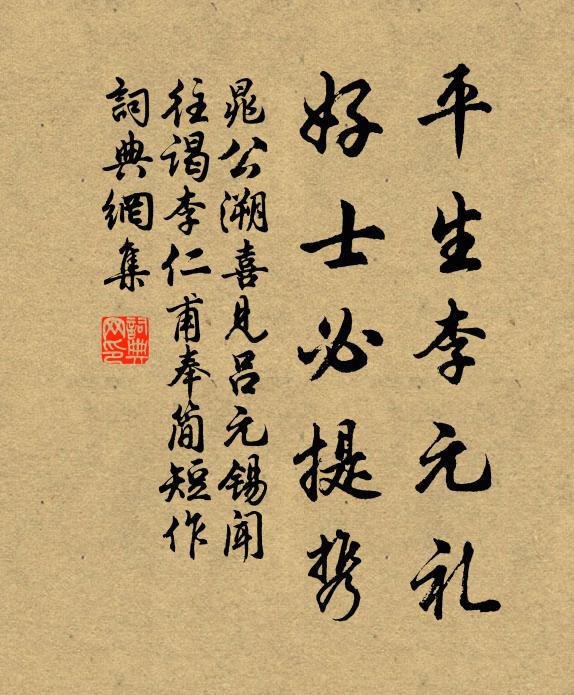 平生李元礼
好士必提携
晁公溯喜见吕元锡闻
往谒李仁甫奉简短作
詞典網集
詞典網印